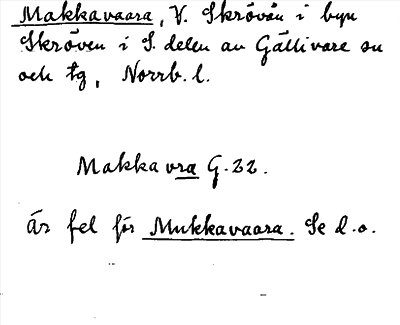 Makkavaara, V. Skröven i byn
Skröven i S. delen av Gällivare sn
och tg, Norrb. l.
Makka vra G. 22.
är fel för Mukkavaara. Se d.o.